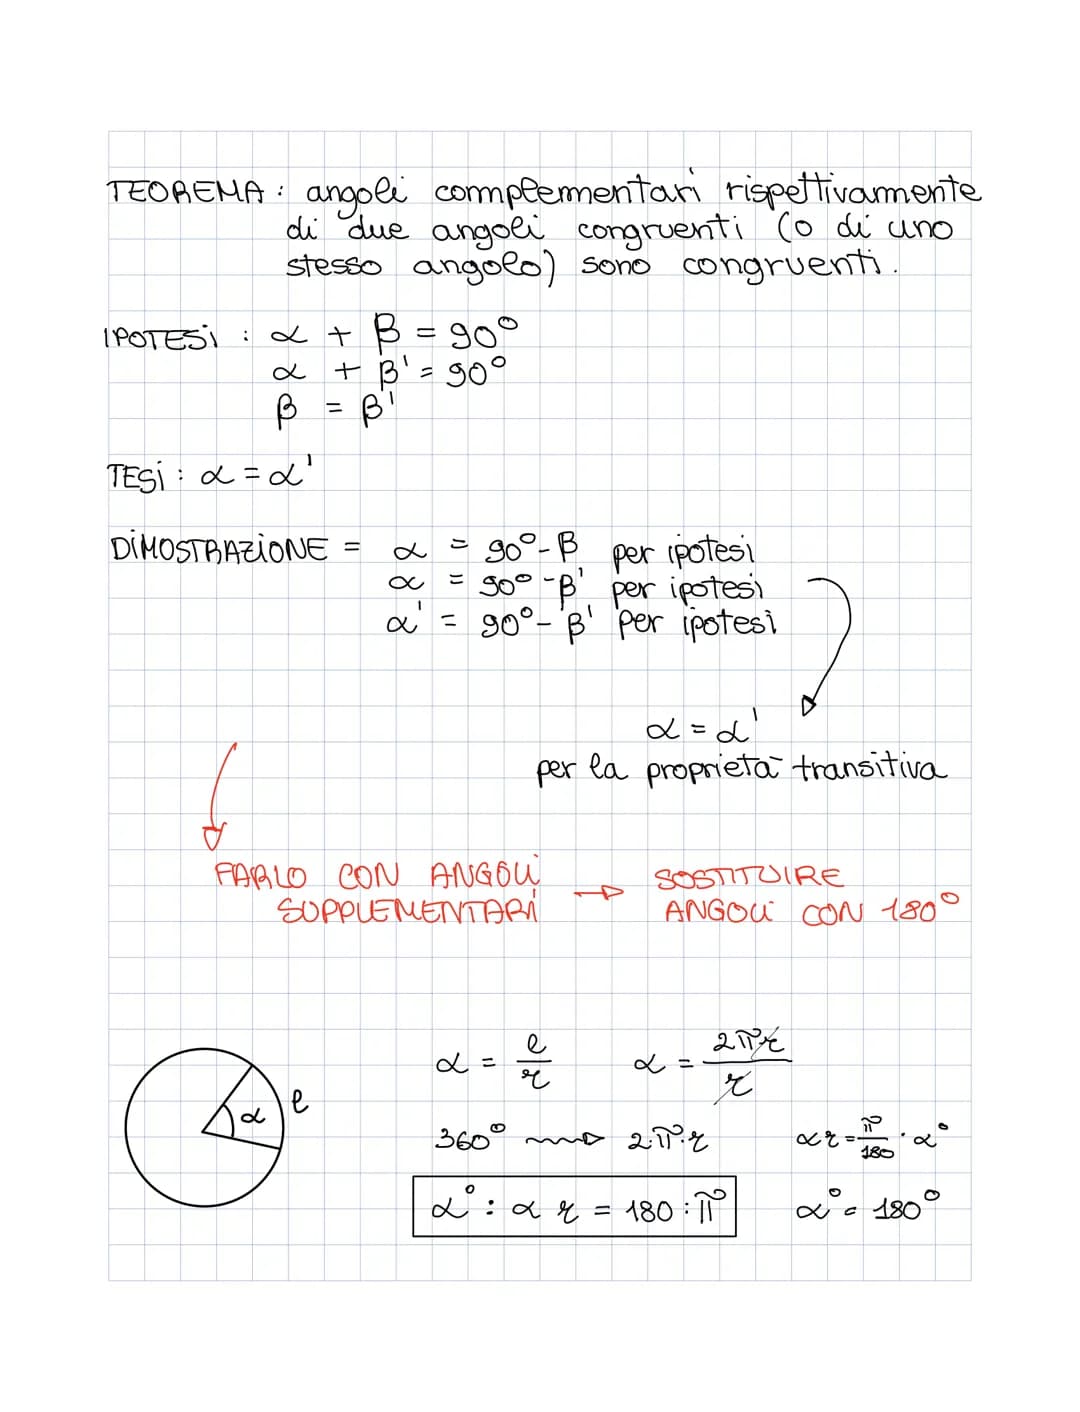 TEOREMA: angoli complementari rispettivamente
di due angoli congruenti (o di uno
stesso angolo) sono congruenti.
IPOTESI: α + β = 90°
α + β' = 90°
β = β'
TESI: α = α'
DIMOSTRAZIONE = α = 90° - β per ipotesi
α = 90° - β' per ipotesi
α' = 90° - β' per ipotesi
α = α'
per la proprietà transitiva
FARLO CON ANGOLI
SUPPLEMENTARI → SOSTITUIRE
ANGOLI CON 180°
α = l/r α = 2πr/r
α l
360° ⟿ 2·π·r αr = π/180 · α°
α° : αr = 180 : π α° = 180°